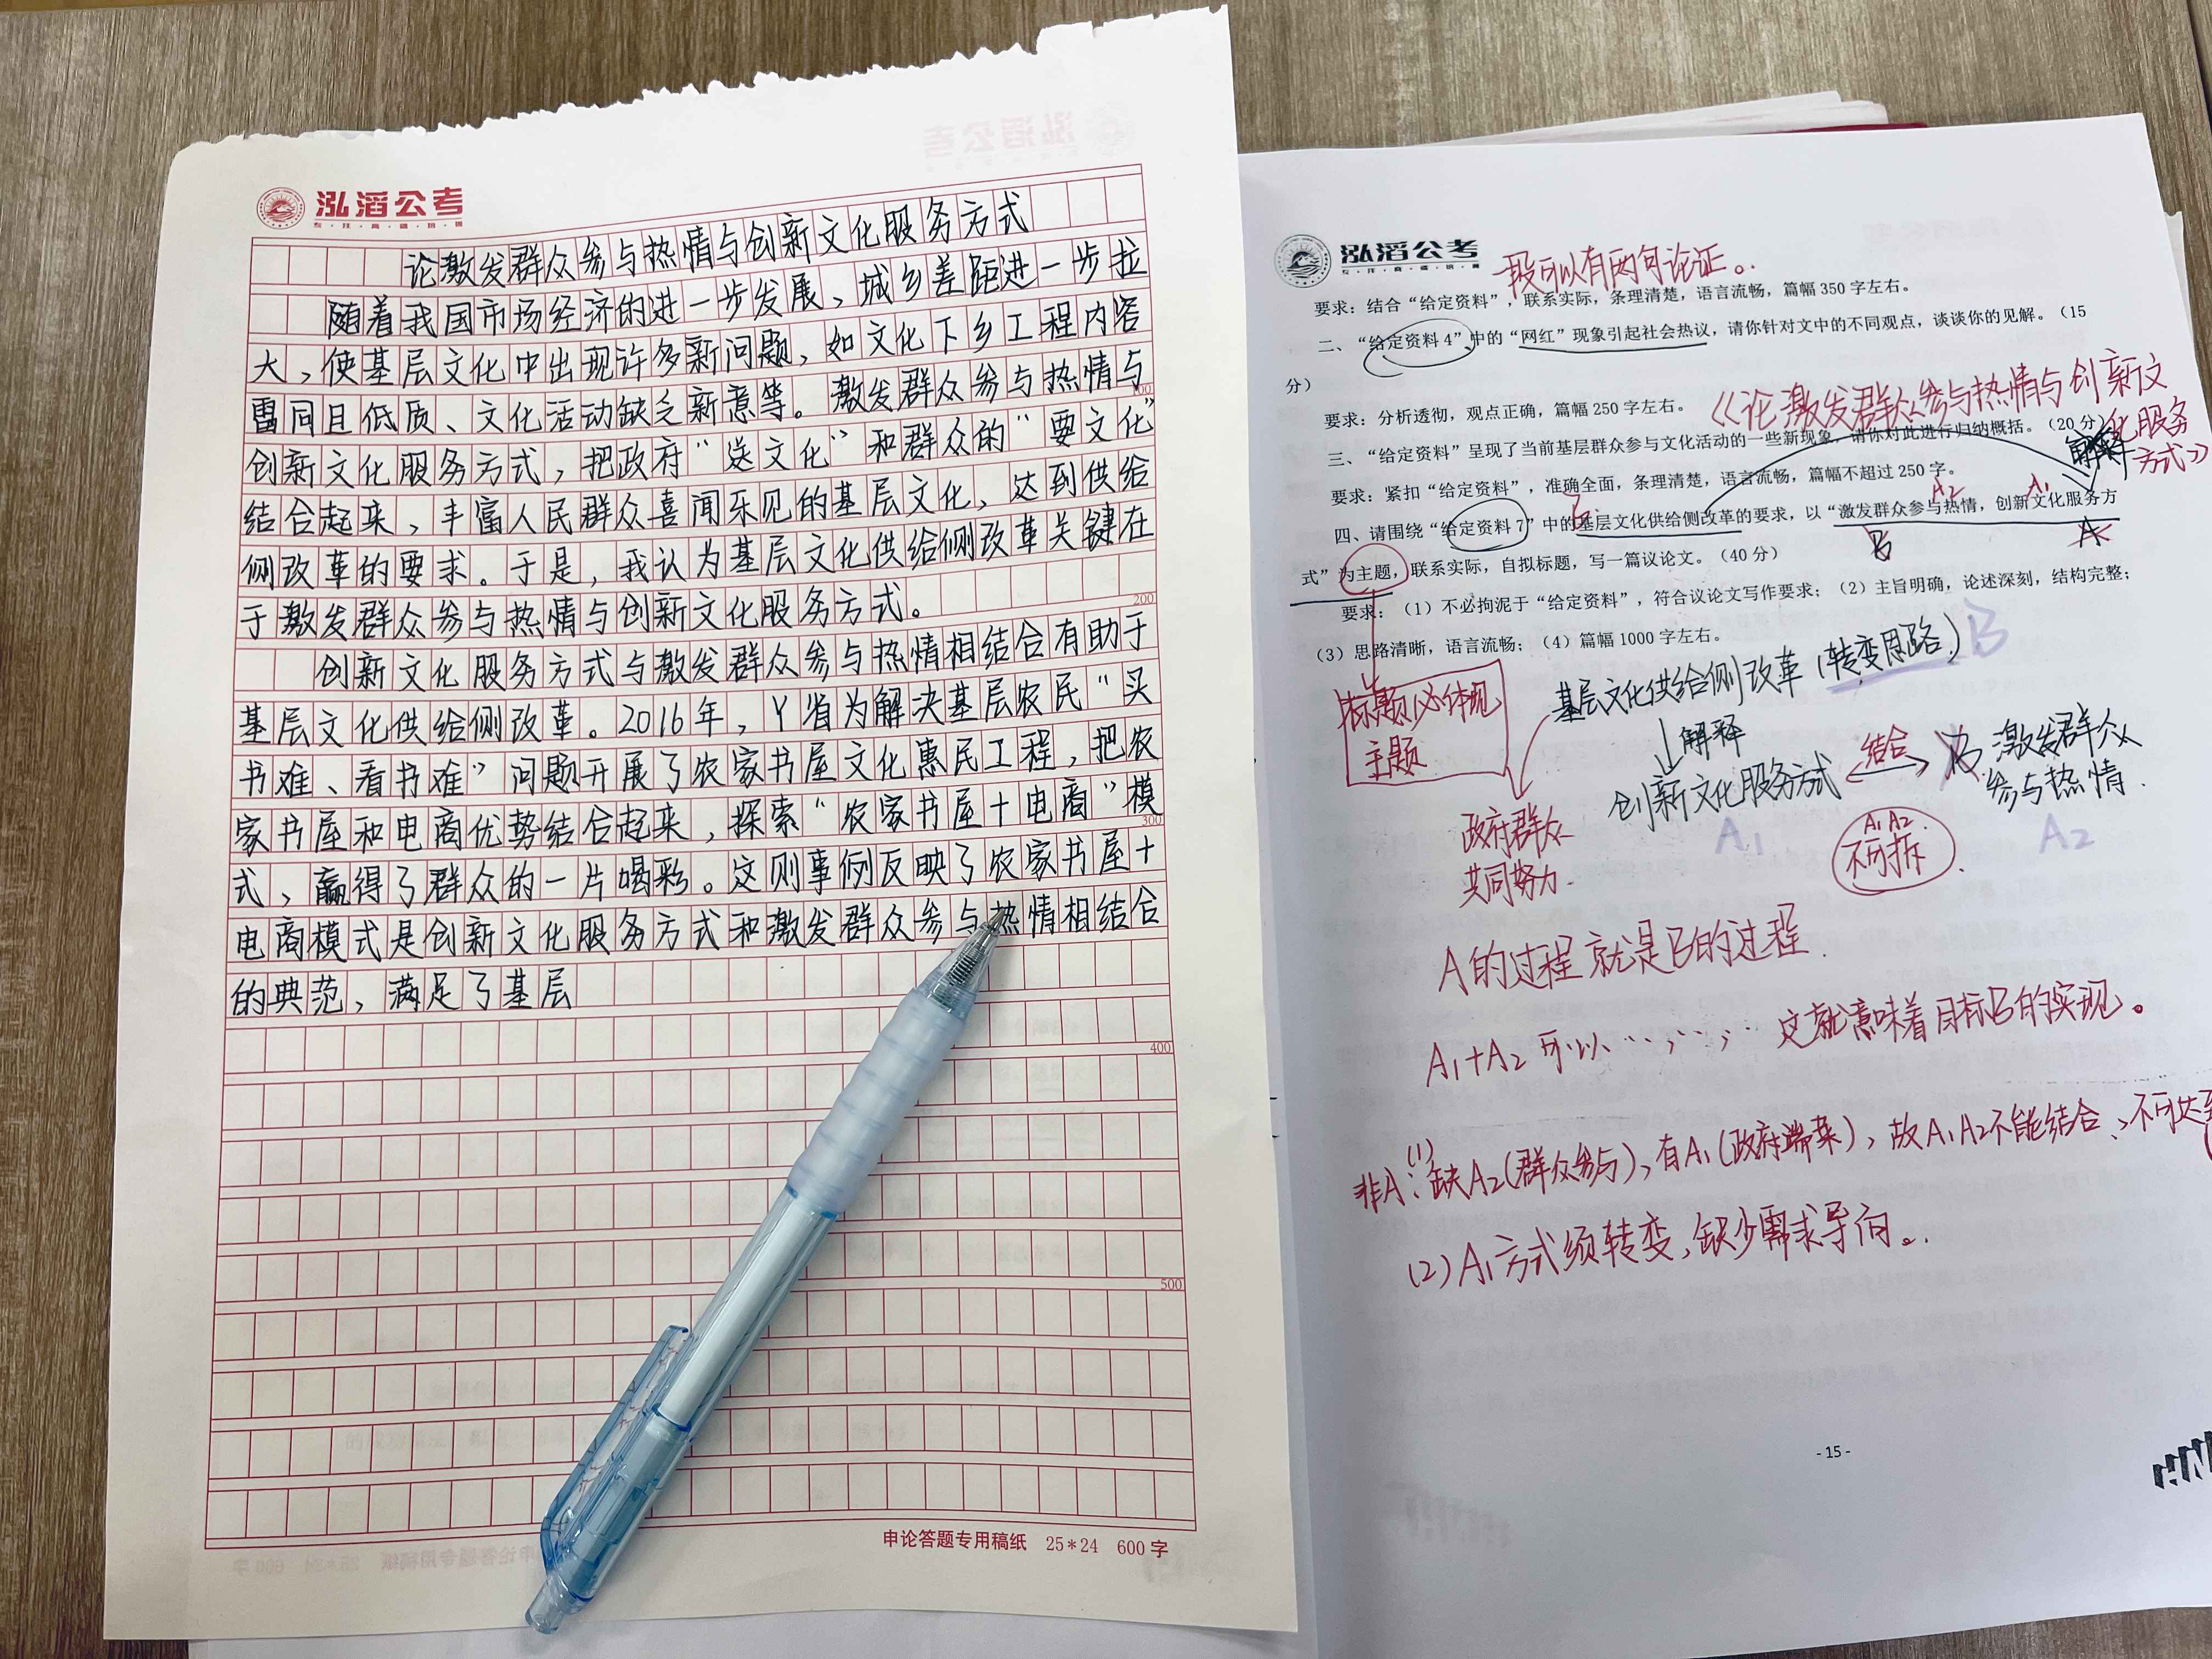 泓滔公考
论激发群众参与热情与创新文化服务方式
随着我国市场经济的进一步发展、城乡差距进一步拉
大，使基层文化中出现许多新问题，如文化下乡工程内容
雷同且低质、文化活动缺乏新意等。激发群众参与热情与
100
创新文化服务方式，把政府“送文化”和群众的“要文化”
结合起来，丰富人民群众喜闻乐见的基层文化，达到供给
侧改革的要求。于是，我认为基层文化供给侧改革关键在
于激发群众参与热情与创新文化服务方式。
200
创新文化服务方式与激发群众参与热情相结合有助于
基层文化供给侧改革。2016年，Y省为解决基层农民“买
书难、看书难”问题开展了农家书屋文化惠民工程，把农
家书屋和电商优势结合起来，探索“农家书屋+电商”模
300
式，赢得了群众的一片喝彩。这则事例反映了农家书屋+
电商模式是创新文化服务方式和激发群众参与热情相结合
的典范，满足了基层
400
500
申论答题专用稿纸 25*24 600字
泓滔公考
一段可以有两句论证。
要求：结合“给定资料”，联系实际，条理清楚，语言流畅，篇幅350字左右。
二、“给定资料4”中的“网红”现象引起社会热议，请你针对文中的不同观点，谈谈你的见解。（15
分）
要求：分析透彻，观点正确，篇幅250字左右。
《论激发群众参与热情与创新文
化服务
方式》
三、“给定资料”呈现了当前基层群众参与文化活动的一些新现象，请你对此进行归纳概括。（20分）
解释
要求：紧扣“给定资料”，准确全面，条理清楚，语言流畅，篇幅不超过250字。
B A2 A1
四、请围绕“给定资料7”中的基层文化供给侧改革的要求，以“激发群众参与热情，创新文化服务方
B A
式”为主题，联系实际，自拟标题，写一篇议论文。（40分）
要求：（1）不必拘泥于“给定资料”，符合议论文写作要求；（2）主旨明确，论述深刻，结构完整；
（3）思路清晰，语言流畅；（4）篇幅1000字左右。
标题必体现
主题
基层文化供给侧改革（转变思路）B
解释
创新文化服务方式
结合
B 激发群众
参与热情.
A1
A2
A1 A2
不可拆
政府群众
共同努力.
A的过程就是B的过程.
A1+A2 可以…；…；… 这就意味着目标B的实现。
非A：(1)缺A2(群众参与)，有A1(政府端菜)，故A1A2不能结合，不可达到
(2)A1方式须转变，缺少需求导向。
- 15 -